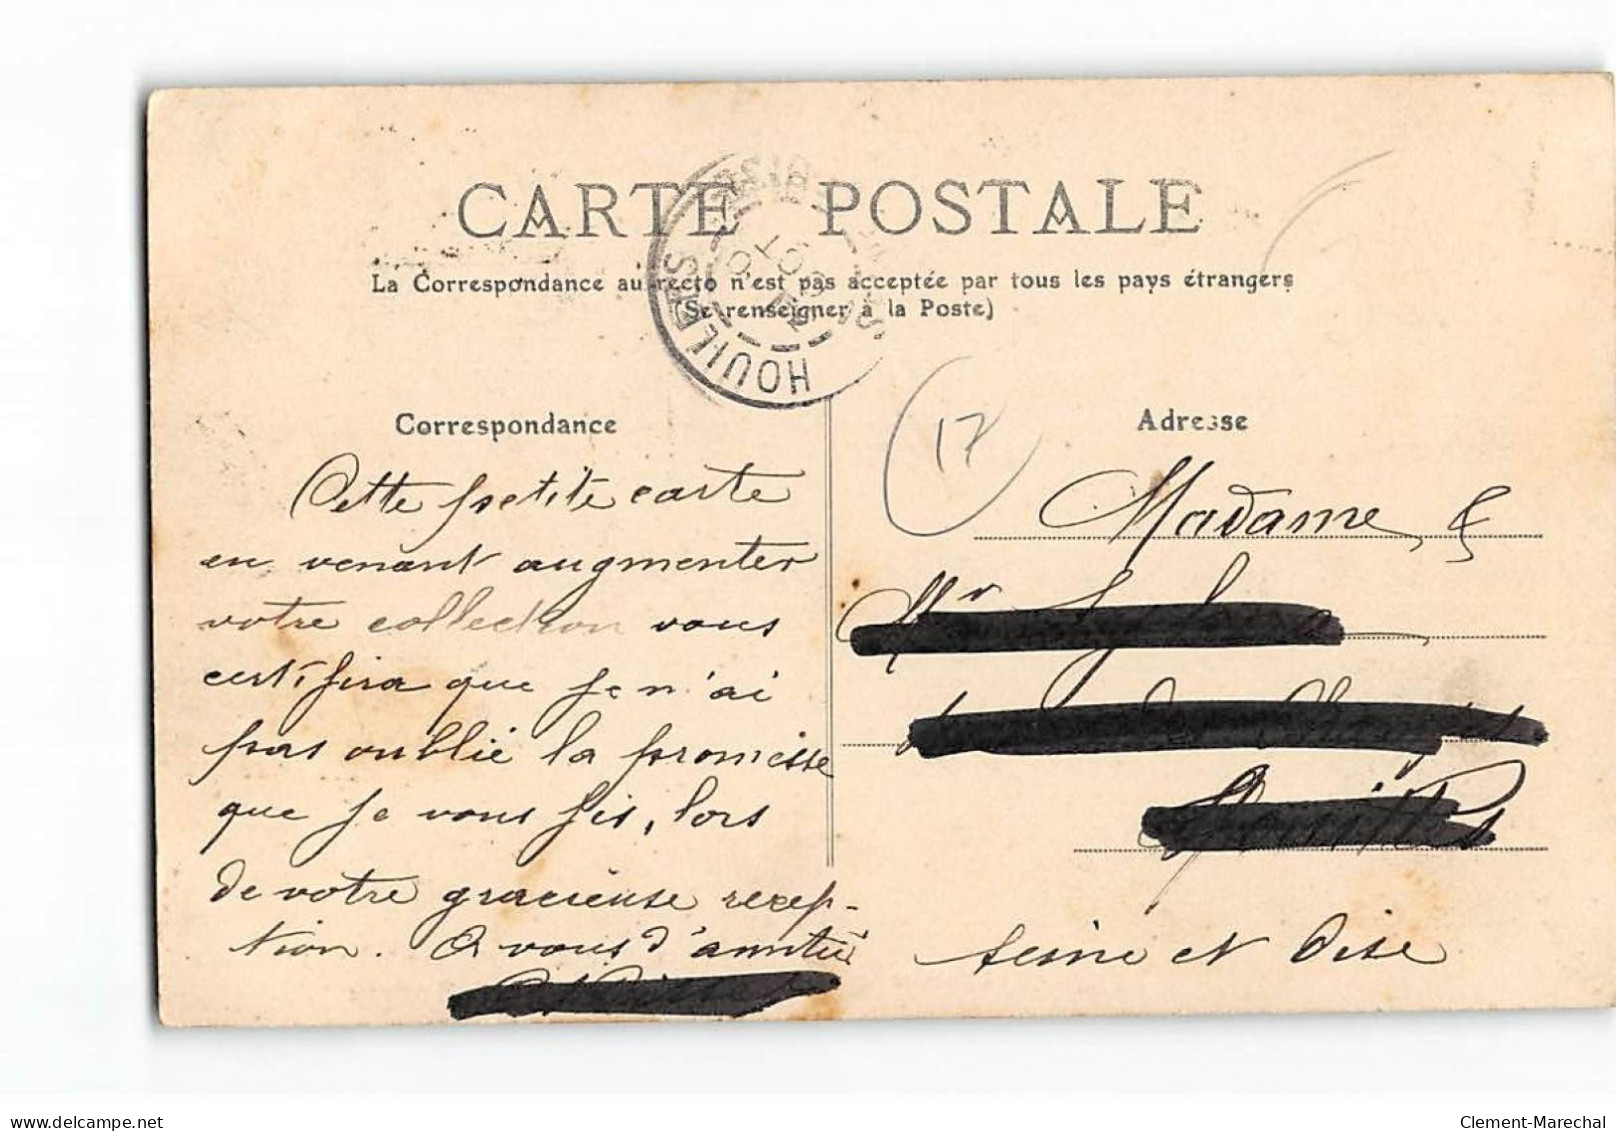 CARTE POSTALE
La Correspondance au recto n'est pas acceptée par tous les pays étrangers
(Se renseigner à la Poste)
HOUILLES
Correspondance
Cette petite carte
en venant augmenter
votre collection vous
certifira que je n'ai
pas oublié la promesse
que je vous fis, lors
de votre gracieuse recep-
tion. A vous d'amitié
17
Adresse
Madame &
Mr
Seine et Oise
delcampe.net
Clement-Marechal